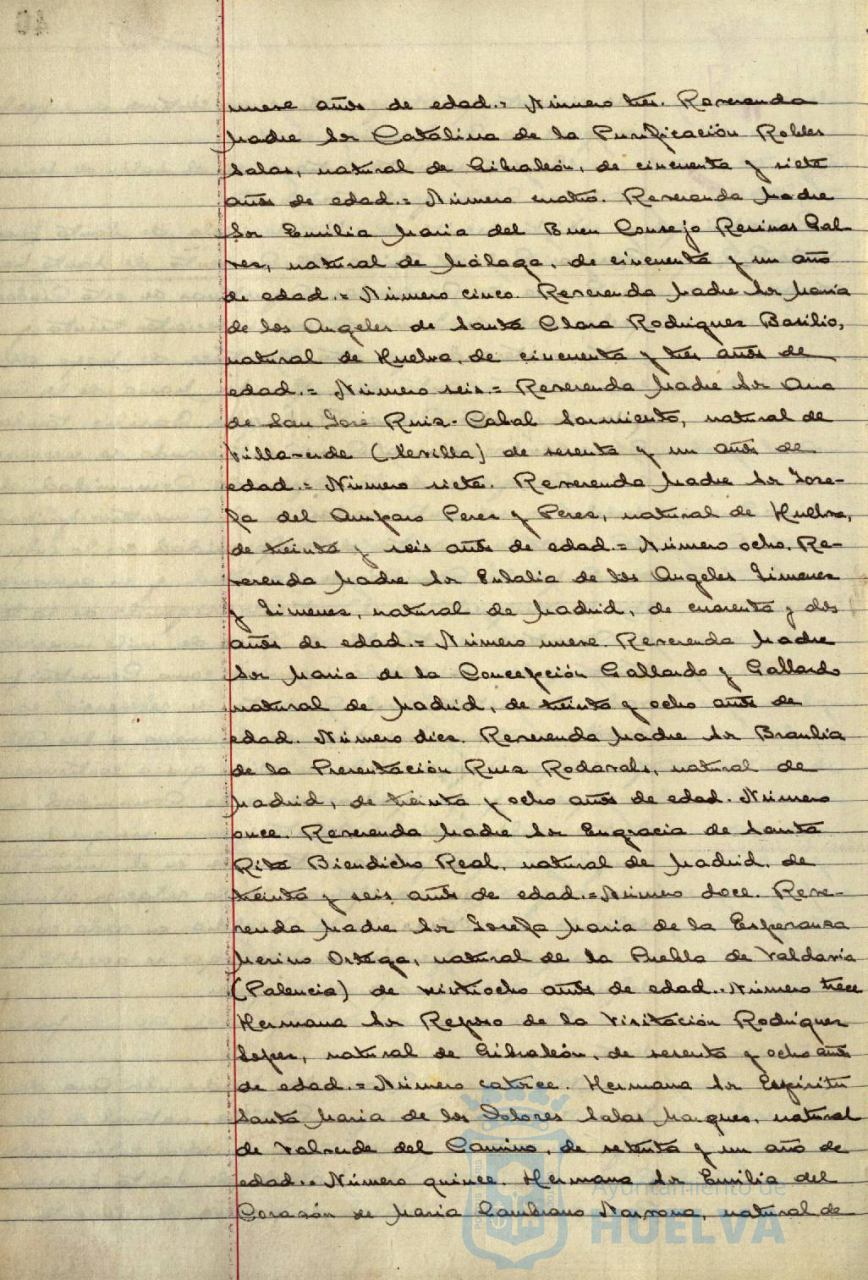 nueve años de edad.= Número tres. Reverenda
Madre Sor Catalina de la Purificación Robles
Salas, natural de Gibraleón, de cincuenta y siete
años de edad.= Número cuatro. Reverenda Madre
Sor Emilia Maria del Buen Consejo Recinas Gal-
vez, natural de Málaga, de cincuenta y un año
de edad.= Número cinco. Reverenda Madre Sor Maria
de los Angeles de Santa Clara Rodriguez Basilio,
natural de Huelva, de cincuenta y tres años de
edad.= Número seis.= Reverenda Madre Sor Ana
de San José Ruiz-Cabal Sarmiento, natural de
Villaverde (Sevilla) de sesenta y un años de
edad.= Número siete. Reverenda Madre Sor Jose-
fa del Amparo Perez y Perez, natural de Huelva,
de treinta y seis años de edad.= Número ocho. Re-
verenda Madre Sor Eulalia de los Angeles Jimenez
y Jimenez, natural de Madrid, de cuarenta y dos
años de edad.= Número nueve. Reverenda Madre
Sor Maria de la Concepción Gallardo y Gallardo
natural de Madrid, de treinta y ocho años de
edad. Número diez. Reverenda Madre Sor Braulia
de la Presentación Ruiz, natural de
Madrid, de treinta y ocho años de edad. Número
once. Reverenda Madre Sor Engracia de Santa
Rita Biendicho Real, natural de Madrid, de
treinta y seis años de edad.= Número doce. Reve-
renda Madre Sor Josefa Maria de la Esperanza
Merino Ortega, natural de la Puebla de Valdavia
(Palencia) de veintiocho años de edad.. Número trece
Hermana Sor Reposo de la Visitación Rodriguez
Lopez, natural de Gibraleón, de sesenta y ocho años
de edad.= Número catorce. Hermana Sor Espíritu
Santo Maria de los Dolores Salas Marquez, natural
de Valverde del Camino, de setenta y un año de
edad.= Número quince. Hermana Sor Emilia del
Corazón de Maria Zambrano Narvona, natural de
Ayuntamiento de
HUELVA